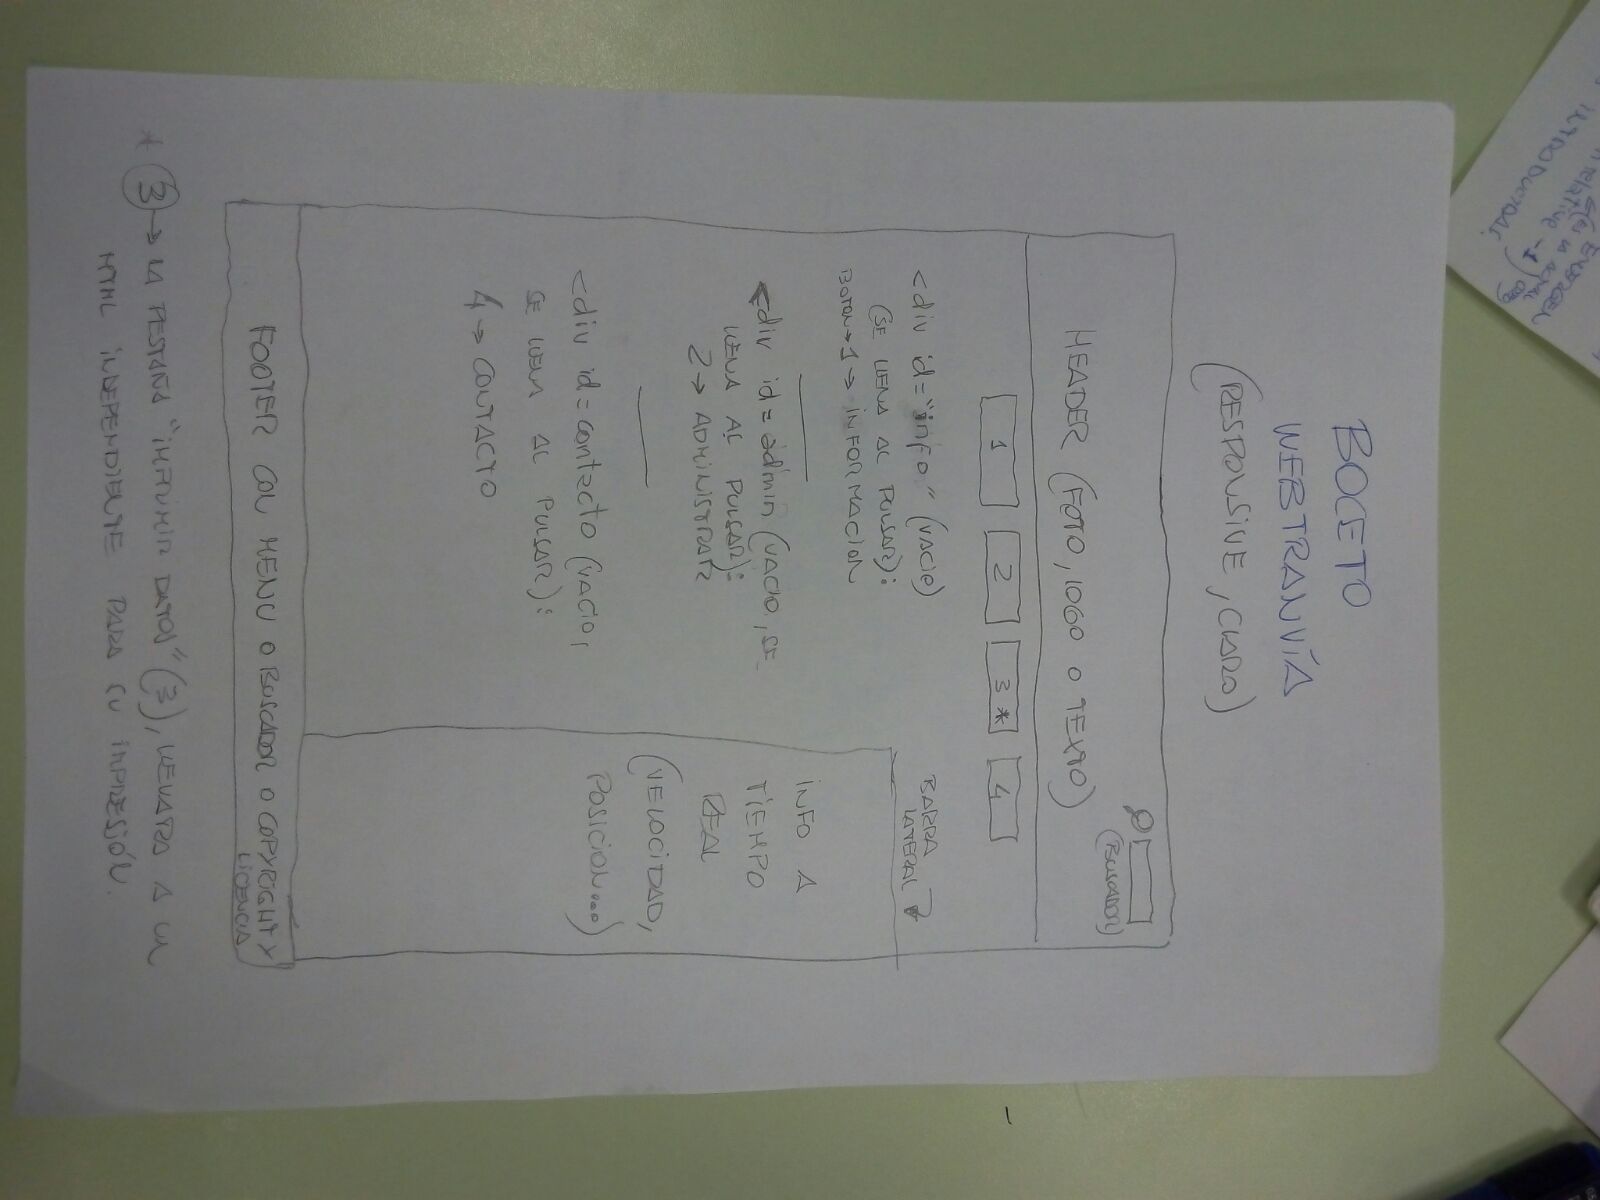 EMERGEN
relative -1)
INTRODUCTDAS.
BOCETO
WEBTRANVÍA
(RESPONSIVE, CLARO)
(BUSCADOR)
HEADER (FOTO, LOGO O TEXTO)
1 2 3* 4
<div id="info" (VACIO)
(SE LLENA AL PULSAR):
BOTON→1→ INFORMACION
BARRA
LATERAL
<div id=admin (VACIO, SE
LLENA AL PULSAR):
2→ ADMINISTRAR
<div id=contacto (VACIO,
SE LLENA AL PULSAR):
4→ CONTACTO
INFO A
TIEMPO
REAL
(VELOCIDAD,
POSICION...)
FOOTER CON MENU O BUSCADOR O COPYRIGHT Y
LICENCIA
* 3→ LA PESTAÑA "IMPRIMIR DATOS" (3), LLEVARA A UN
HTML INDEPENDIENTE PARA SU IMPRESIÓN.